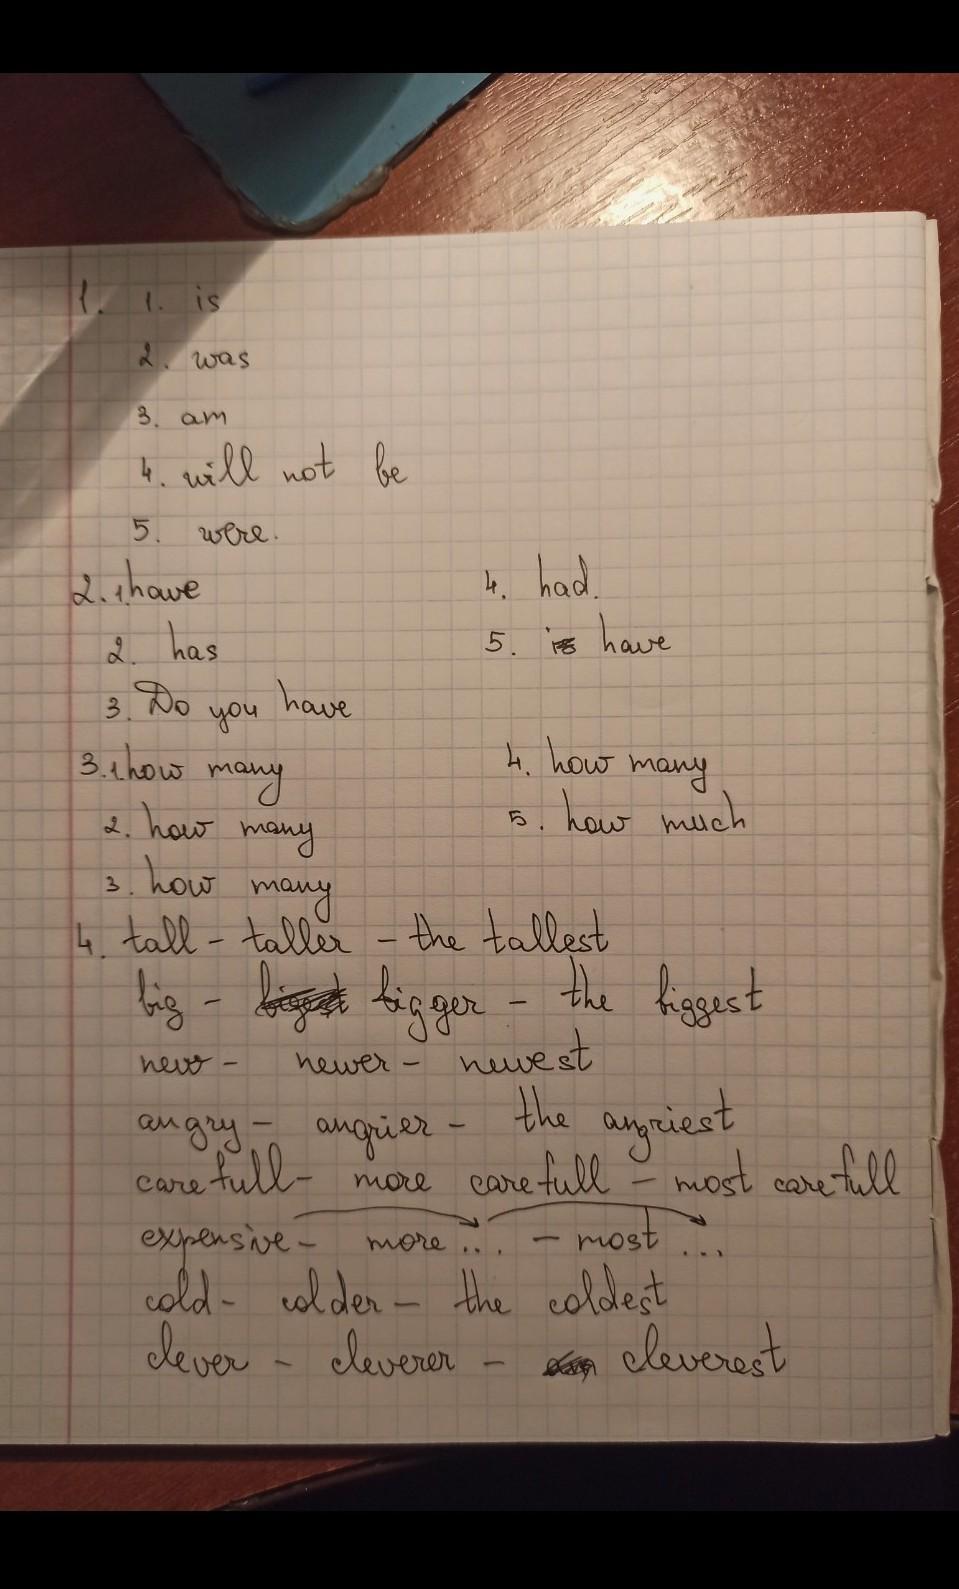 1. 1. is
2. was
3. am
4. will not be
5. were.
2. 1. have
2. has
3. Do you have
4. had.
5. is have
3. 1. how many
2. how many
3. how many
4. how many
5. how much
4. tall - taller - the tallest
big - bigger - the biggest
new - newer - newest
angry - angrier - the angriest
carefull - more carefull - most carefull
expensive - more ... - most ...
cold - colder - the coldest
clever - cleverer - cleverest